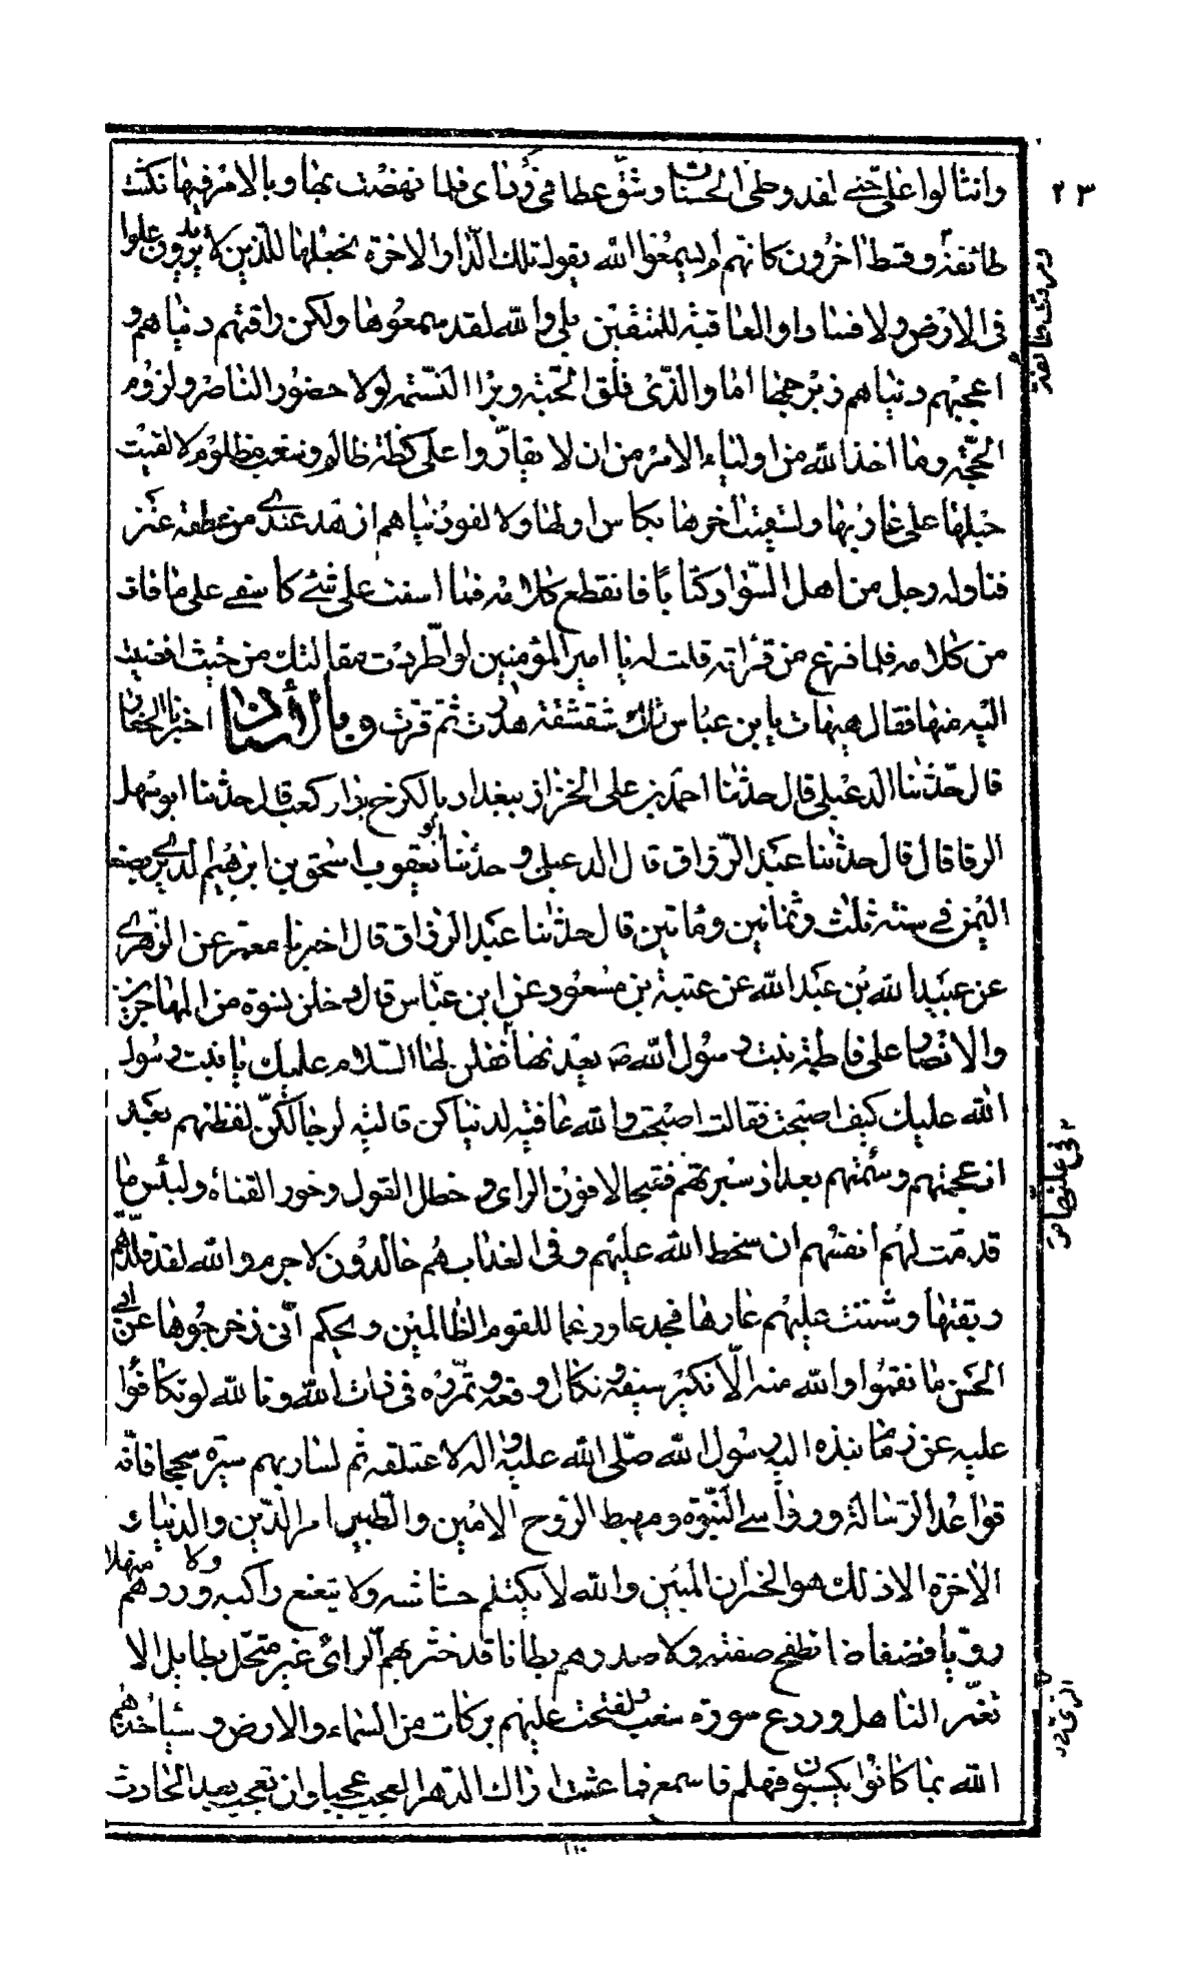 ٢٣
وانثالوا على حتى لقد وطئ الحسنان وشق عطافي ردائى فلما نهضت بها وبالامر فيها نكثت
طائفة وقسط اخرون كانهم لم يسمعوا الله يقول تلك الدار الاخرة نجعلها للذين لا يريدون علوا
فى الارض ولا فسادا والعاقبة للمتقين بلى والله لقد سمعوها ولكن راقتهم دنياهم و
اعجبهم دنياهم زبرجها اما والذى فلق الحبة وبرا النسمة لولا حضور الناصر ولزوم
الحجة وما اخذ الله من اولياء الامر من ان لا يقاروا على كظة ظالم وسغب مظلوم لالقيت
حبلها على غاربها ولسقيت اخرها بكاس اولها ولالفوا دنياهم ازهد عندى من عطفة عنز
فناوله رجل من اهل السواد كتابا فانقطع كلامه فما اسفت على شئ كاسفى على ما فات
من كلامه فلما فرغ من قرائته قلت له يا امير المؤمنين لو اطردت مقالتك من حيث افضيت
اليه منها فقال هيهات يا بن عباس تلك شقشقة هدرت ثم قرت وبالأسناد اخبرنا الحفار
قال حدثنا الدعبلى قال حدثنا احمد بن على الخزاز ببغداد بالكرخ بدار كعب قال حدثنا ابو سهل
الرفا قال قال حدثنا عبد الرزاق قال الدعبلى و حدثنا ابو يعقوب اسحق بن ابرهيم الدبرى بصنعا
اليمن فى سنة ثلث وثمانين ومأتين قال حدثنا عبد الرزاق قال اخبرنا معمر عن الزهرى
عن عبيد الله بن عبد الله عن عتبة بن مسعود عن ابن عباس قال دخلن نسوة من المهاجرين
والانصار على فاطمة بنت رسول الله ص بعدنها فقلن لها السلام عليك يا بنت رسول
الله عليك كيف اصبحت فقالت اصبحت والله عافية لدنياكن قالية لرجالكن لفظتهم بعد
ان عجمتهم وسئمتهم بعد ان سبرتهم فقبحا لافون الراى و خطل القول وخور القناة ولبئس ما
قدمت لهم انفسهم ان سخط الله عليهم وفى العذاب هم خالدون لا جرم والله لقد قلدتهم
ربقتها وشننت عليهم غارها فجدعا ورغما للقوم الظالمين ويحكم انى زحزحوها عن ابى
الحسن ما نقموا والله منه الا نكير سيفه ونكال وقعه وتنمره فى ذات الله وتا لله لو تكافوا
عليه عن زمام نبذه اليه رسول الله صلى الله عليه واله لاعتلقه ثم لسار بهم سيرة سجحا فانه
قواعد الرسالة ورواسى النبوة ومهبط الروح الامين والطبين امر الدين والدنيا و
الاخرة الا ذلك هو الخسران المبين والله لا يكتلم خشاشه ولا يتعتع راكبه ولاوردهم منهلا
رويا فضفاضا تطفح ضفته ولا صدرهم بطانا قد خثر بهم الراى غير متحل بطايل الا
تغمر الناهل وردع سورة سغب ولفتحت عليهم بركات من السماء والارض و سياخذهم
الله بما كانوا يكسبون فهلم فاسمع فما عشت اراك الدهر العجب عجبا وان تعجب بعد الحادث
١١٠